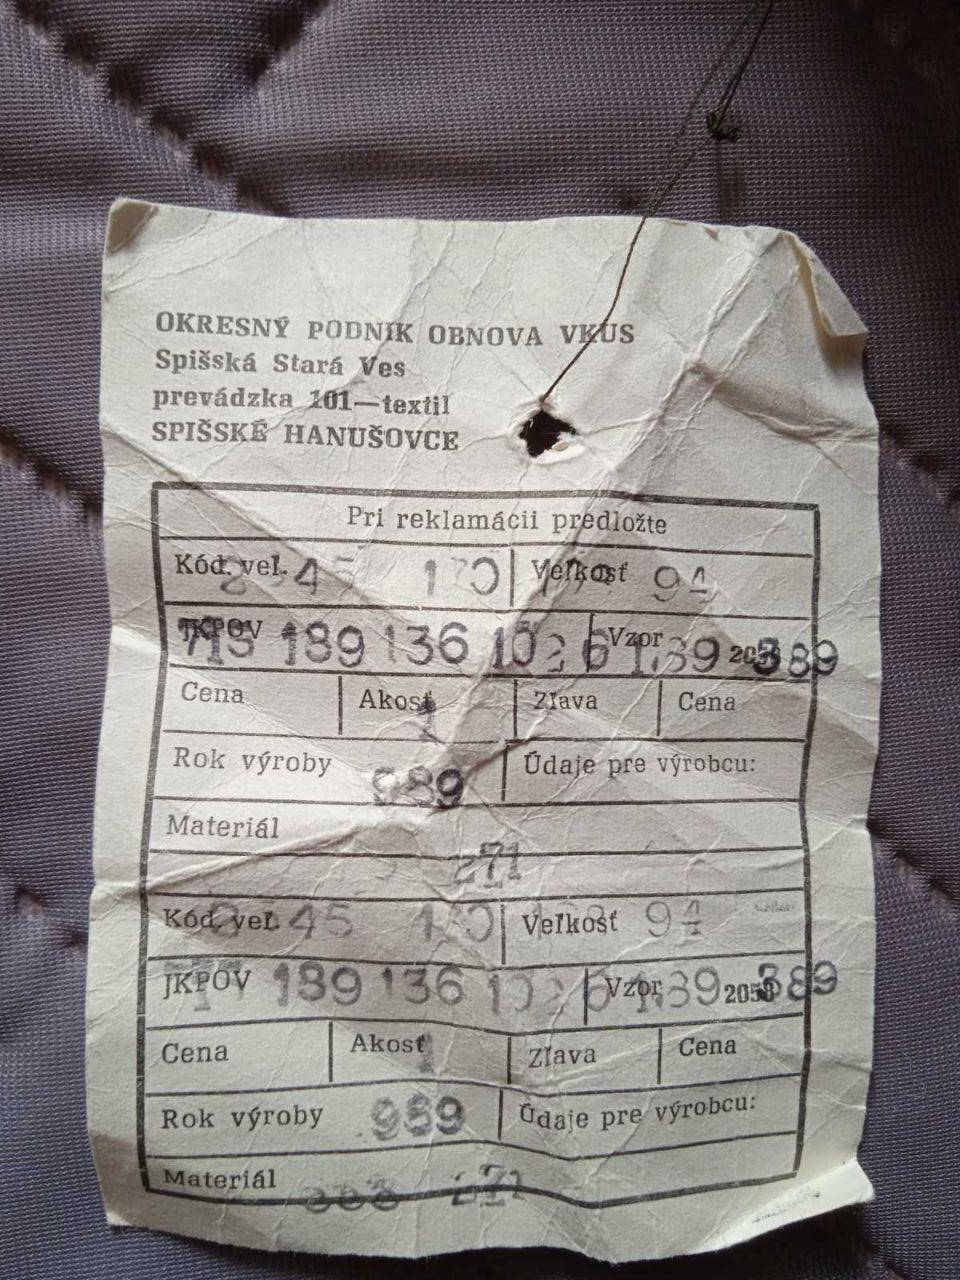 OKRESNÝ PODNIK OBNOVA VKUS
Spišská Stará Ves
prevádzka 101—textil
SPIŠSKÉ HANUŠOVCE
Pri reklamácii predložte
Kód. veľ. 45 170 Veľkosť 94
JKPOV 189 136 Vzor 389
Cena Akosť Zľava Cena
Rok výroby 989 Údaje pre výrobcu:
Materiál
271
Kód. veľ. 45 170 Veľkosť 94
JKPOV 189 136 Vzor 389
Cena Akosť Zľava Cena
Rok výroby 989 Údaje pre výrobcu:
Materiál 271